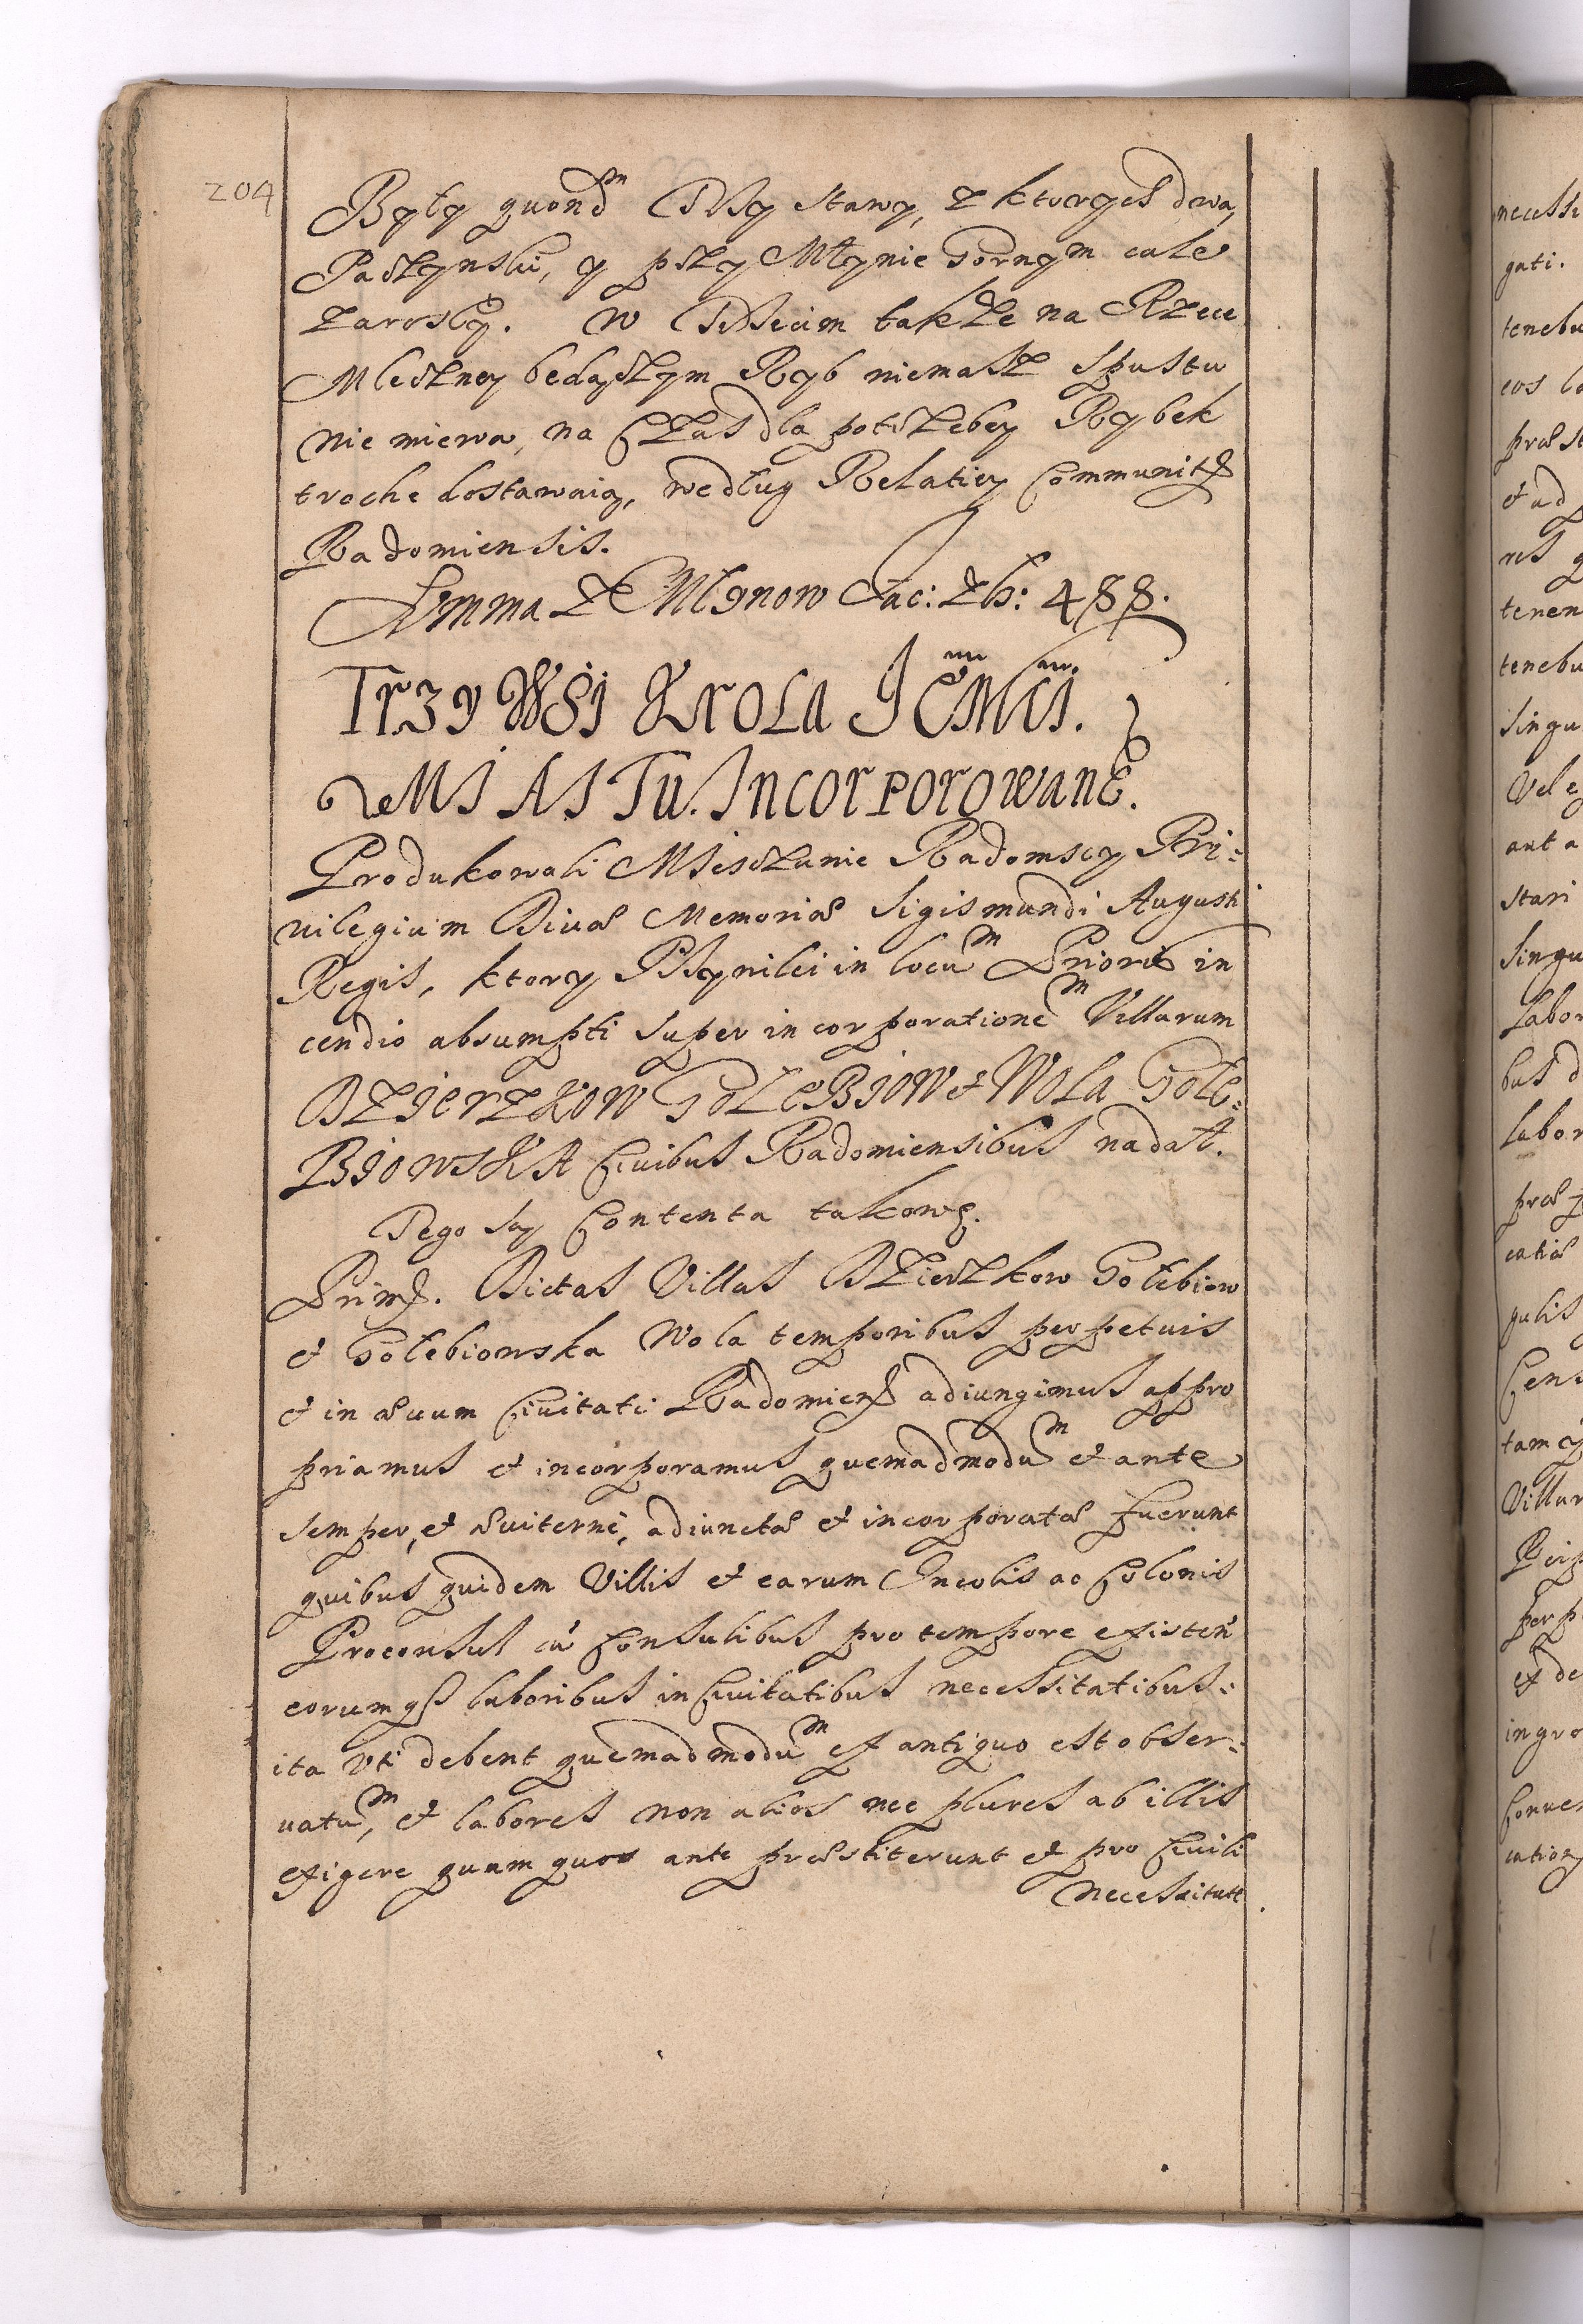 204
Były quond^m Trzy stawy, z ktorych dwa,
Paczynski, y przy Młynie Gornym cale
zarosły. W Trzecim takze na Rzece
Mleczney będączym Ryb niemasz spustu
nie miewa, na czas dla potrzeby Rybek
troche dostawaią, według Relatiey Communit
Radomiensis.
Summa z Młynow fac: zł: 488.
Trzy WSi KroLa JeMci.
MiASTu. Incorporowane.
Produkowali Miesczanie Radomscy Pri:
uilegium Diuæ Memoriæ Sigismundi Augusti
Regis, ktory Przywilei in locu^m Prioris in
cendio absumpti super incorporatione^m Villarum
DzierzKow GoLeBiow et WoLa Gołe:
BiowsKA Ciuibus Radomiensibus nadał.
Tego są Contenta takowe.
Dictas Villas Dzierzkow Gołebiow
et Gołebiowska Wola temporibus perpetuis
et in æuum Ciuitati Radomien adiungimus appro
priamus et incorporamus quemadmodu^m et ante
semper, et æuiterne, adiunctæ et incorporatæ fuerunt
quibus quidem Villis et earum Incolis ac Colonis
Proconsul cu Consulibus pro tempore existen
eorumq laboribus in Ciuitatibus necessitatibus:
ita vti debent quemadmodu^m ex antiquo est obser:
uatu^m, et labores non alios nec plures ab illis
exigere quam quos ante præstiterunt et pro Ciuili
necessitate
necessi
gati.
tenebu
eos la
præst
et ad
res q
tenen
tenebu
singu
Vel e
aut a
stari
singu
Labor
bus d
labor
catiæ
gulis
Cens
tam
Villar
perp
ex de
ingro
Conue
cation